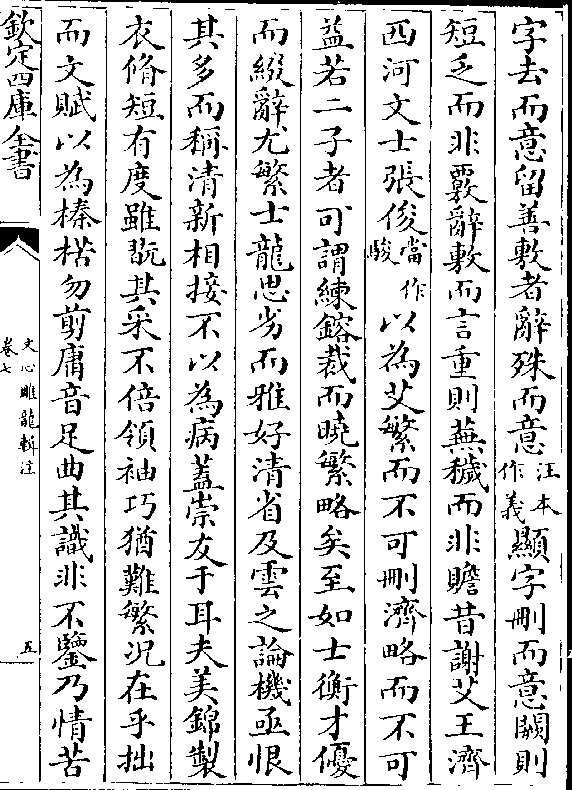 字去而意留善敷者辭殊而意汪本作義顯字刪而意闕則
短乏而非覈辭敷而言重則蕪穢而非贍昔謝艾王濟
西河文士張俊當作駿以為艾繁而不可刪濟略而不可
益若二子者可謂練鎔裁而曉繁略矣至如士衡才優
而綴辭尤繁士龍思劣而雅好清省及雲之論機亟恨
其多而稱清新相接不以為病蓋崇友于耳夫美錦製
衣脩短有度雖翫其采不倍領袖巧猶難繁況在乎拙
而文賦以為榛楛勿剪庸音足曲其識非不鑒乃情苦
欽定四庫全書
文心雕龍輯注
卷七
五